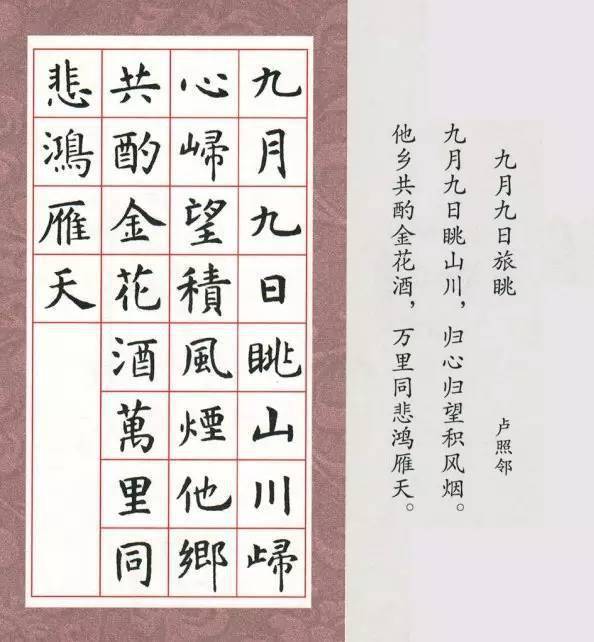 九月九日眺山川歸
心歸望積風煙他鄉
共酌金花酒萬里同
悲鴻雁天
九月九日旅眺
卢照邻
九月九日眺山川，归心归望积风烟。
他乡共酌金花酒，万里同悲鸿雁天。